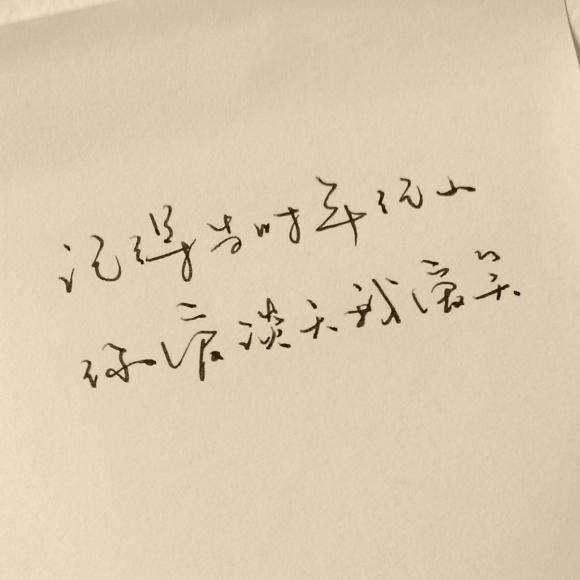 记得当时年纪小
你爱谈天我爱笑